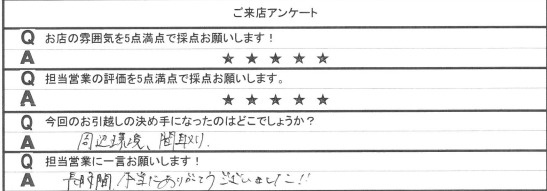 ご来店アンケート
Q お店の雰囲気を5点満点で採点お願いします！
A ★ ★ ★ ★ ★
Q 担当営業の評価を5点満点で採点お願いします。
A ★ ★ ★ ★ ★
Q 今回のお引越しの決め手になったのはどこでしょうか？
A 周辺環境、間取り.
Q 担当営業に一言お願いします！
A 長時間、本当にありがとうございました!!